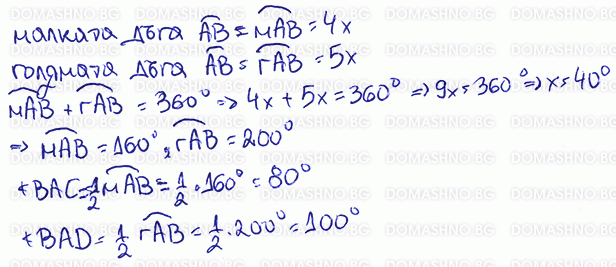 малката дъга AB̂ = мAB̂ = 4x
голямата дъга AB̂ = гAB̂ = 5x
мAB̂ + гAB̂ = 360° => 4x + 5x = 360° => 9x = 360° => x = 40°
=> мAB̂ = 160°, гAB̂ = 200°
∢BAC = 1/2 мAB̂ = 1/2 . 160° = 80°
∢BAD = 1/2 гAB̂ = 1/2 . 200° = 100°